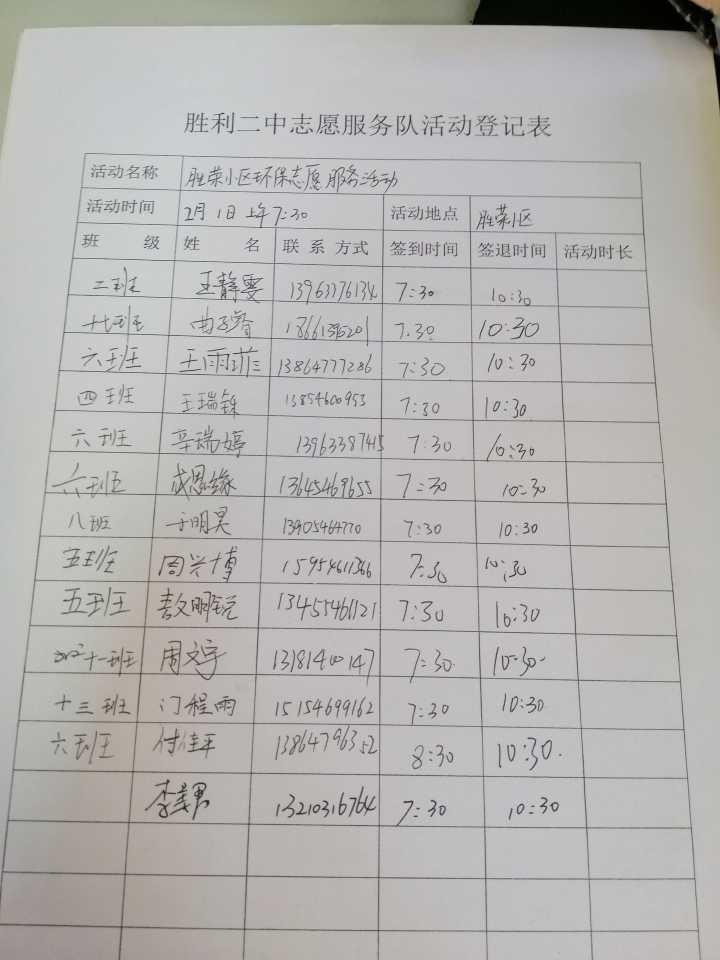 胜利二中志愿服务队活动登记表
活动名称 胜荣小区环保志愿服务活动
活动时间 2月1日上午7:30 活动地点 胜荣小区
班 级 姓 名 联系方式 签到时间 签退时间 活动时长
二班 王静雯 13963376134 7:30 10:30
十七班 曲子睿 7:30 10:30
六班 王雨菲 13864777286 7:30 10:30
四班 王瑞铢 13854600953 7:30 10:30
六班 辛瑞婷 13963387415 7:30 10:30
六班 成思缘 13645469655 7:30 10:30
八班 于明昊 13905464770 7:30 10:30
五班 周兴博 15954611366 7:30 10:30
五班 敖明锐 13455461121 7:30 10:30
十一班 周文宇 7:30 10:30
十三班 门程雨 15154699162 7:30 10:30
六班 付佳平 13864796352 8:30 10:30
李 13210316764 7:30 10:30